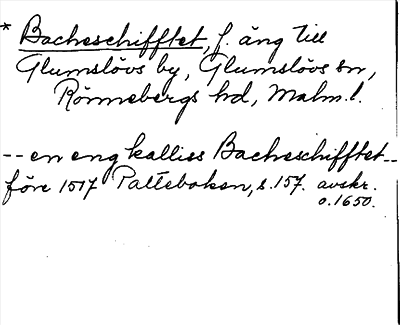 * Bacheschifftet, f. äng till
Glumslövs by, Glumslövs sn,
Rönnebergs hd, Malm. l.
-- en eng kalliss Bacheschifftet --
före 1517 Palteboken, s. 157. avskr.
o. 1650.